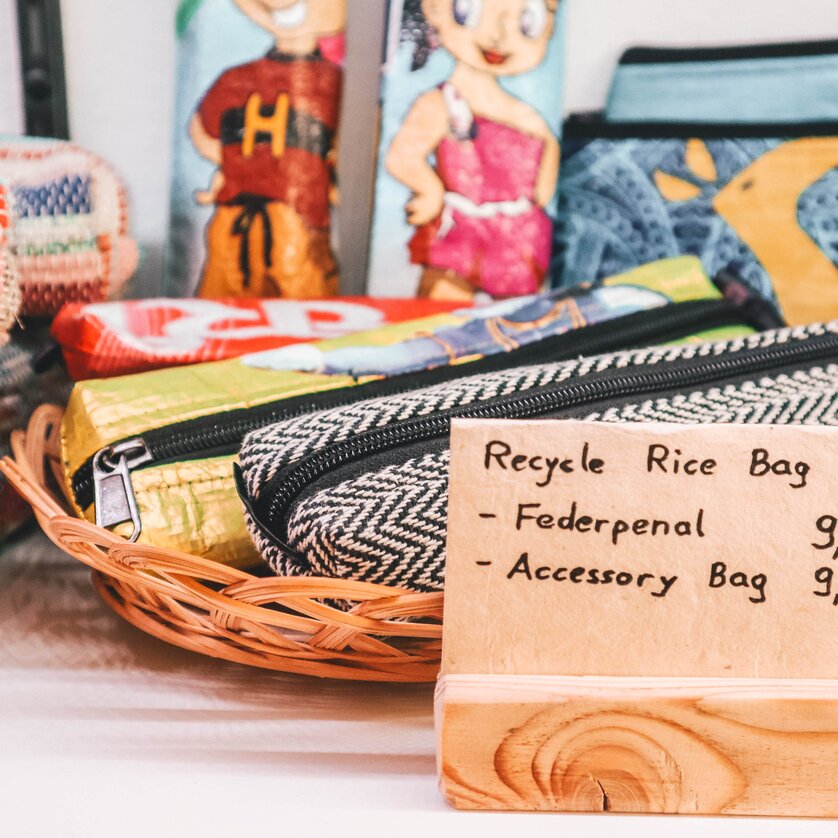 H
Recycle Rice Bag
- Federpenal 9,
- Accessory Bag 9,